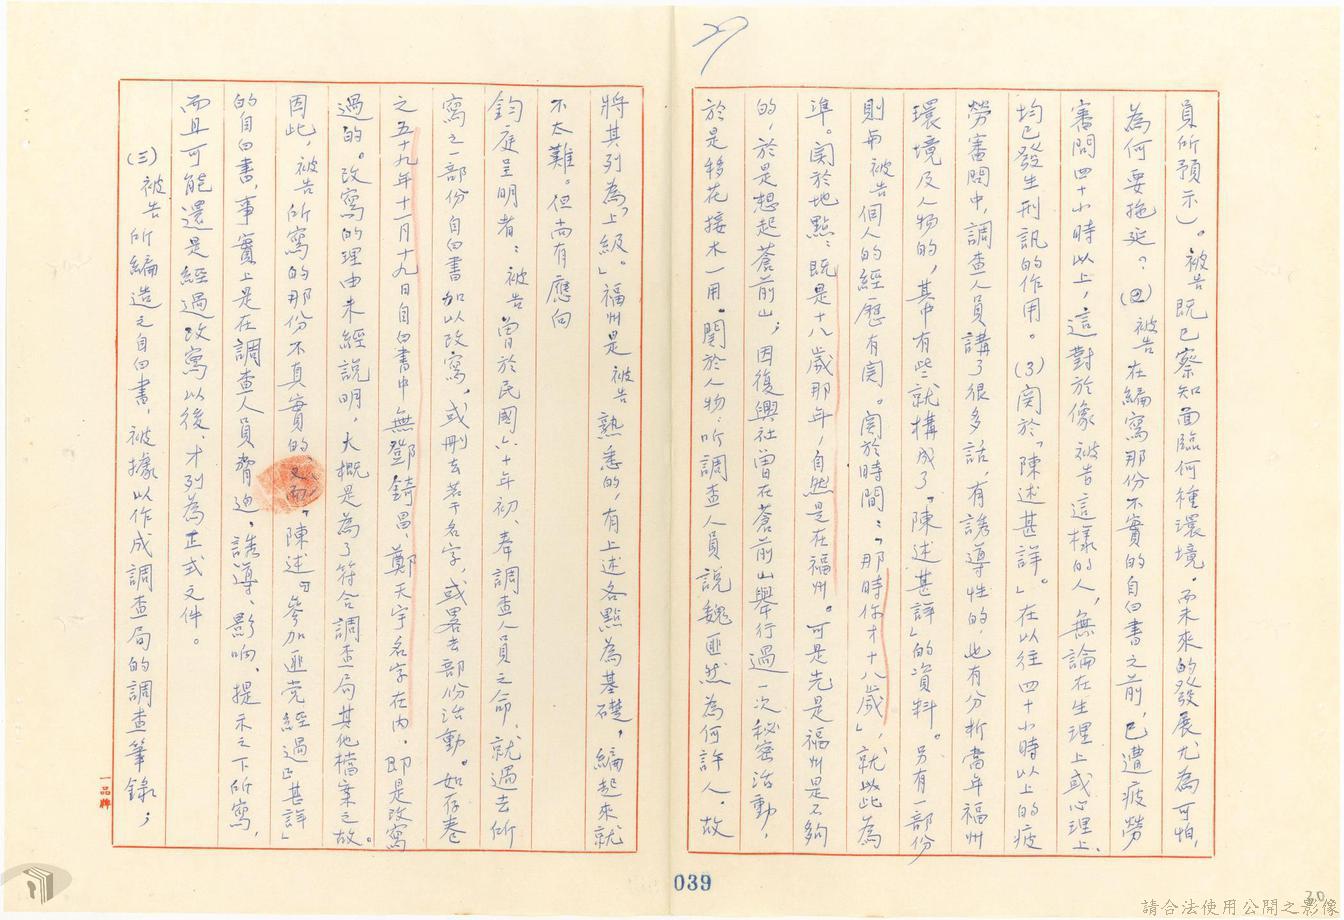 員所預示）。被告既已察知面臨何種環境，而未來的發展尤為可怕，
為何要拖延？(2)被告在編寫那份不實的自白書之前，已遭疲勞
審問四十小時以上，這對於像被告這樣的人，無論在生理上或心理上，
均已發生刑訊的作用。(3)関於「陳述甚詳」。在以往四十小時以上的疲
勞審問中，調查人員講了很多話，有誘導性的，也有分析當年福州
環境及人物的，其中有些就構成了「陳述甚詳」的資料。另有一部份
則與被告個人的經歷有関。関於時間：「那時你才十八歲」，就以此為
準。関於地點：既是十八歲那年，自然是在福州。可是光是福州是不夠
的，於是想起蒼前山；因復興社曾在蒼前山舉行過一次秘密活動，
於是移花接木一用。関於人物：听調查人員說魏匪然為何許人，故
將其列為「上級」。福州是被告熟悉的，有上述各點為基礎，編起來就
不太難。但尚有應向
鈞庭呈明者：被告曾於民國六十年初、奉調查人員之命，就過去所
寫之一部份自白書加以改寫，或刪去若干名字，或畧去部份活動。如存卷
之五十九年十一月十九日自白書中無鄧錡昌、鄭天宇名字在內，即是改寫
過的。改寫的理由未經說明，大概是為了符合調查局其他檔案之故。
因此，被告所寫的那份不真實的、又而「陳述『參加匪党經過』甚詳」
的自白書，事實上是在調查人員脅迫、誘導、影响、提示之下所寫，
而且可能還是經過改寫以後，才列為正式文件。
(三)被告所編造之自白書，被據以作成調查局的調查筆錄；
一品牌
039
20
請合法使用公開之影像